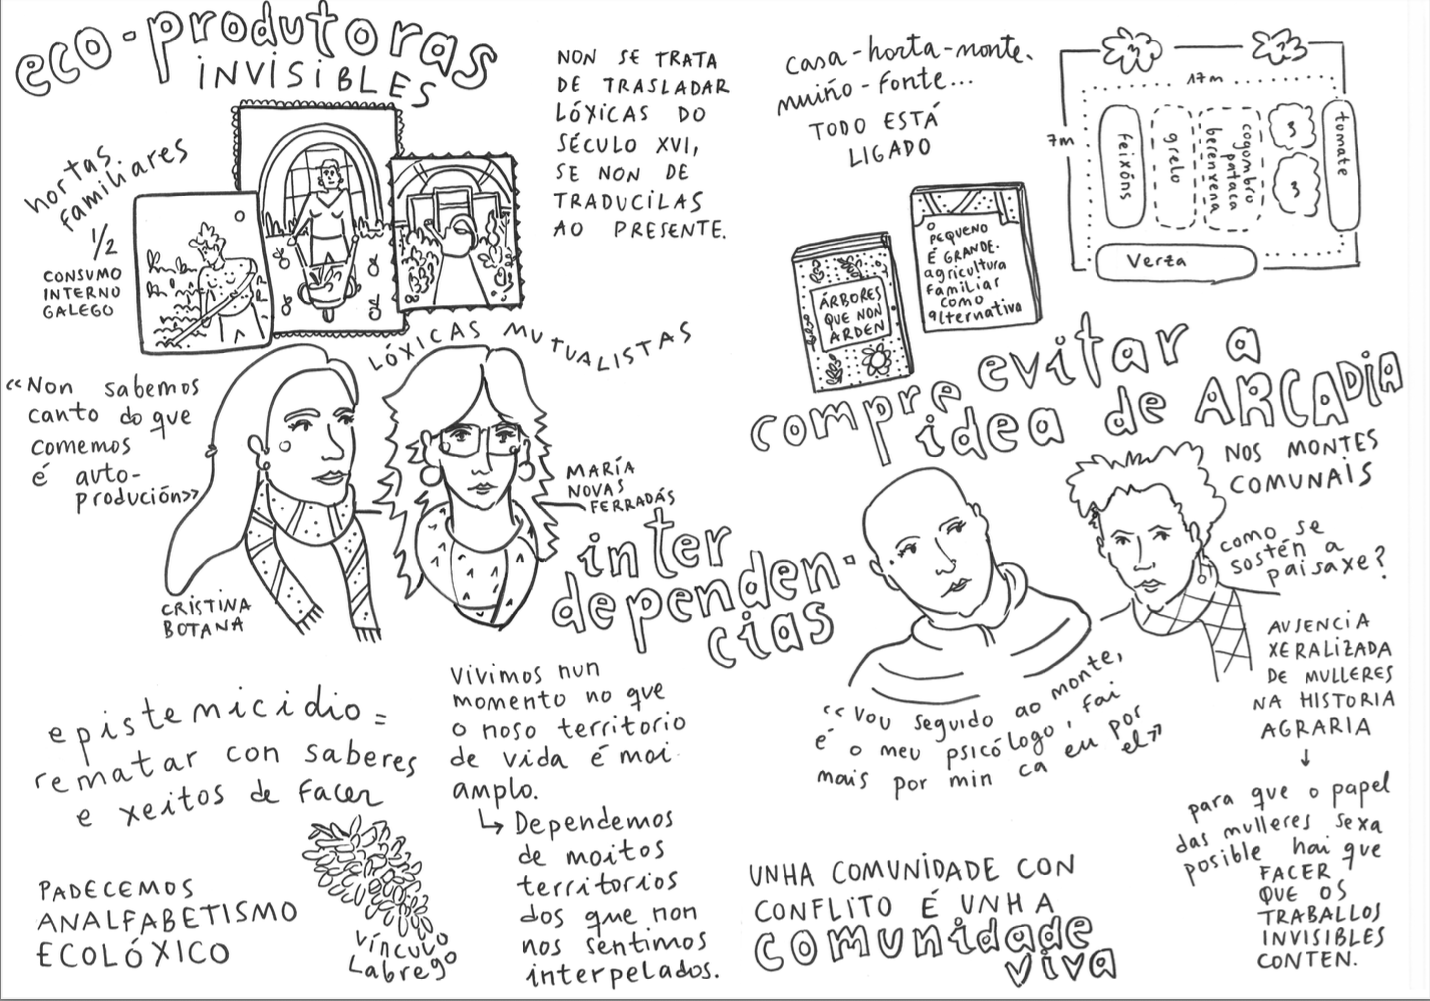 eco-produtoras
INVISIBLES
hortas
familiares
1/2
CONSUMO
INTERNO
GALEGO
NON SE TRATA
DE TRASLADAR
LÓXICAS DO
SÉCULO XVI,
SE NON DE
TRADUCILAS
AO PRESENTE.
LÓXICAS MUTUALISTAS
«Non sabemos
canto do que
comemos
é auto-
produción»
CRISTINA
BOTANA
MARÍA
NOVAS
FERRADÁS
inter
dependen-
cias
epistemicidio =
rematar con saberes
e xeitos de facer
PADECEMOS
ANALFABETISMO
ECOLÓXICO
vínculo
labrego
Vivimos nun
momento no que
o noso territorio
de vida é moi
amplo.
↳ Dependemos
de moitos
territorios
dos que non
nos sentimos
interpelados.
casa-horta-monte.
muiño-fonte...
TODO ESTÁ
LIGADO
3
23
17m
7m
feixóns
grelo
cogombro
pataca
berenxena
3
3
tomate
Verza
ÁRBORES
QUE NON
ARDEN
O
PEQUENO
É GRANDE.
agricultura
familiar
como
alternativa
compre evitar a
idea de ARCADIA
NOS MONTES
COMUNAIS
como se
sostén a
paisaxe?
«Vou seguido ao monte,
é o meu psicólogo, fai
mais por min ca eu por
el»
AUSENCIA
XERALIZADA
DE MULLERES
NA HISTORIA
AGRARIA
↓
para que o papel
das mulleres sexa
posible hai que
FACER
QUE OS
TRABALLOS
INVISIBLES
CONTEN.
UNHA COMUNIDADE CON
CONFLITO É UNHA
comunidade
viva